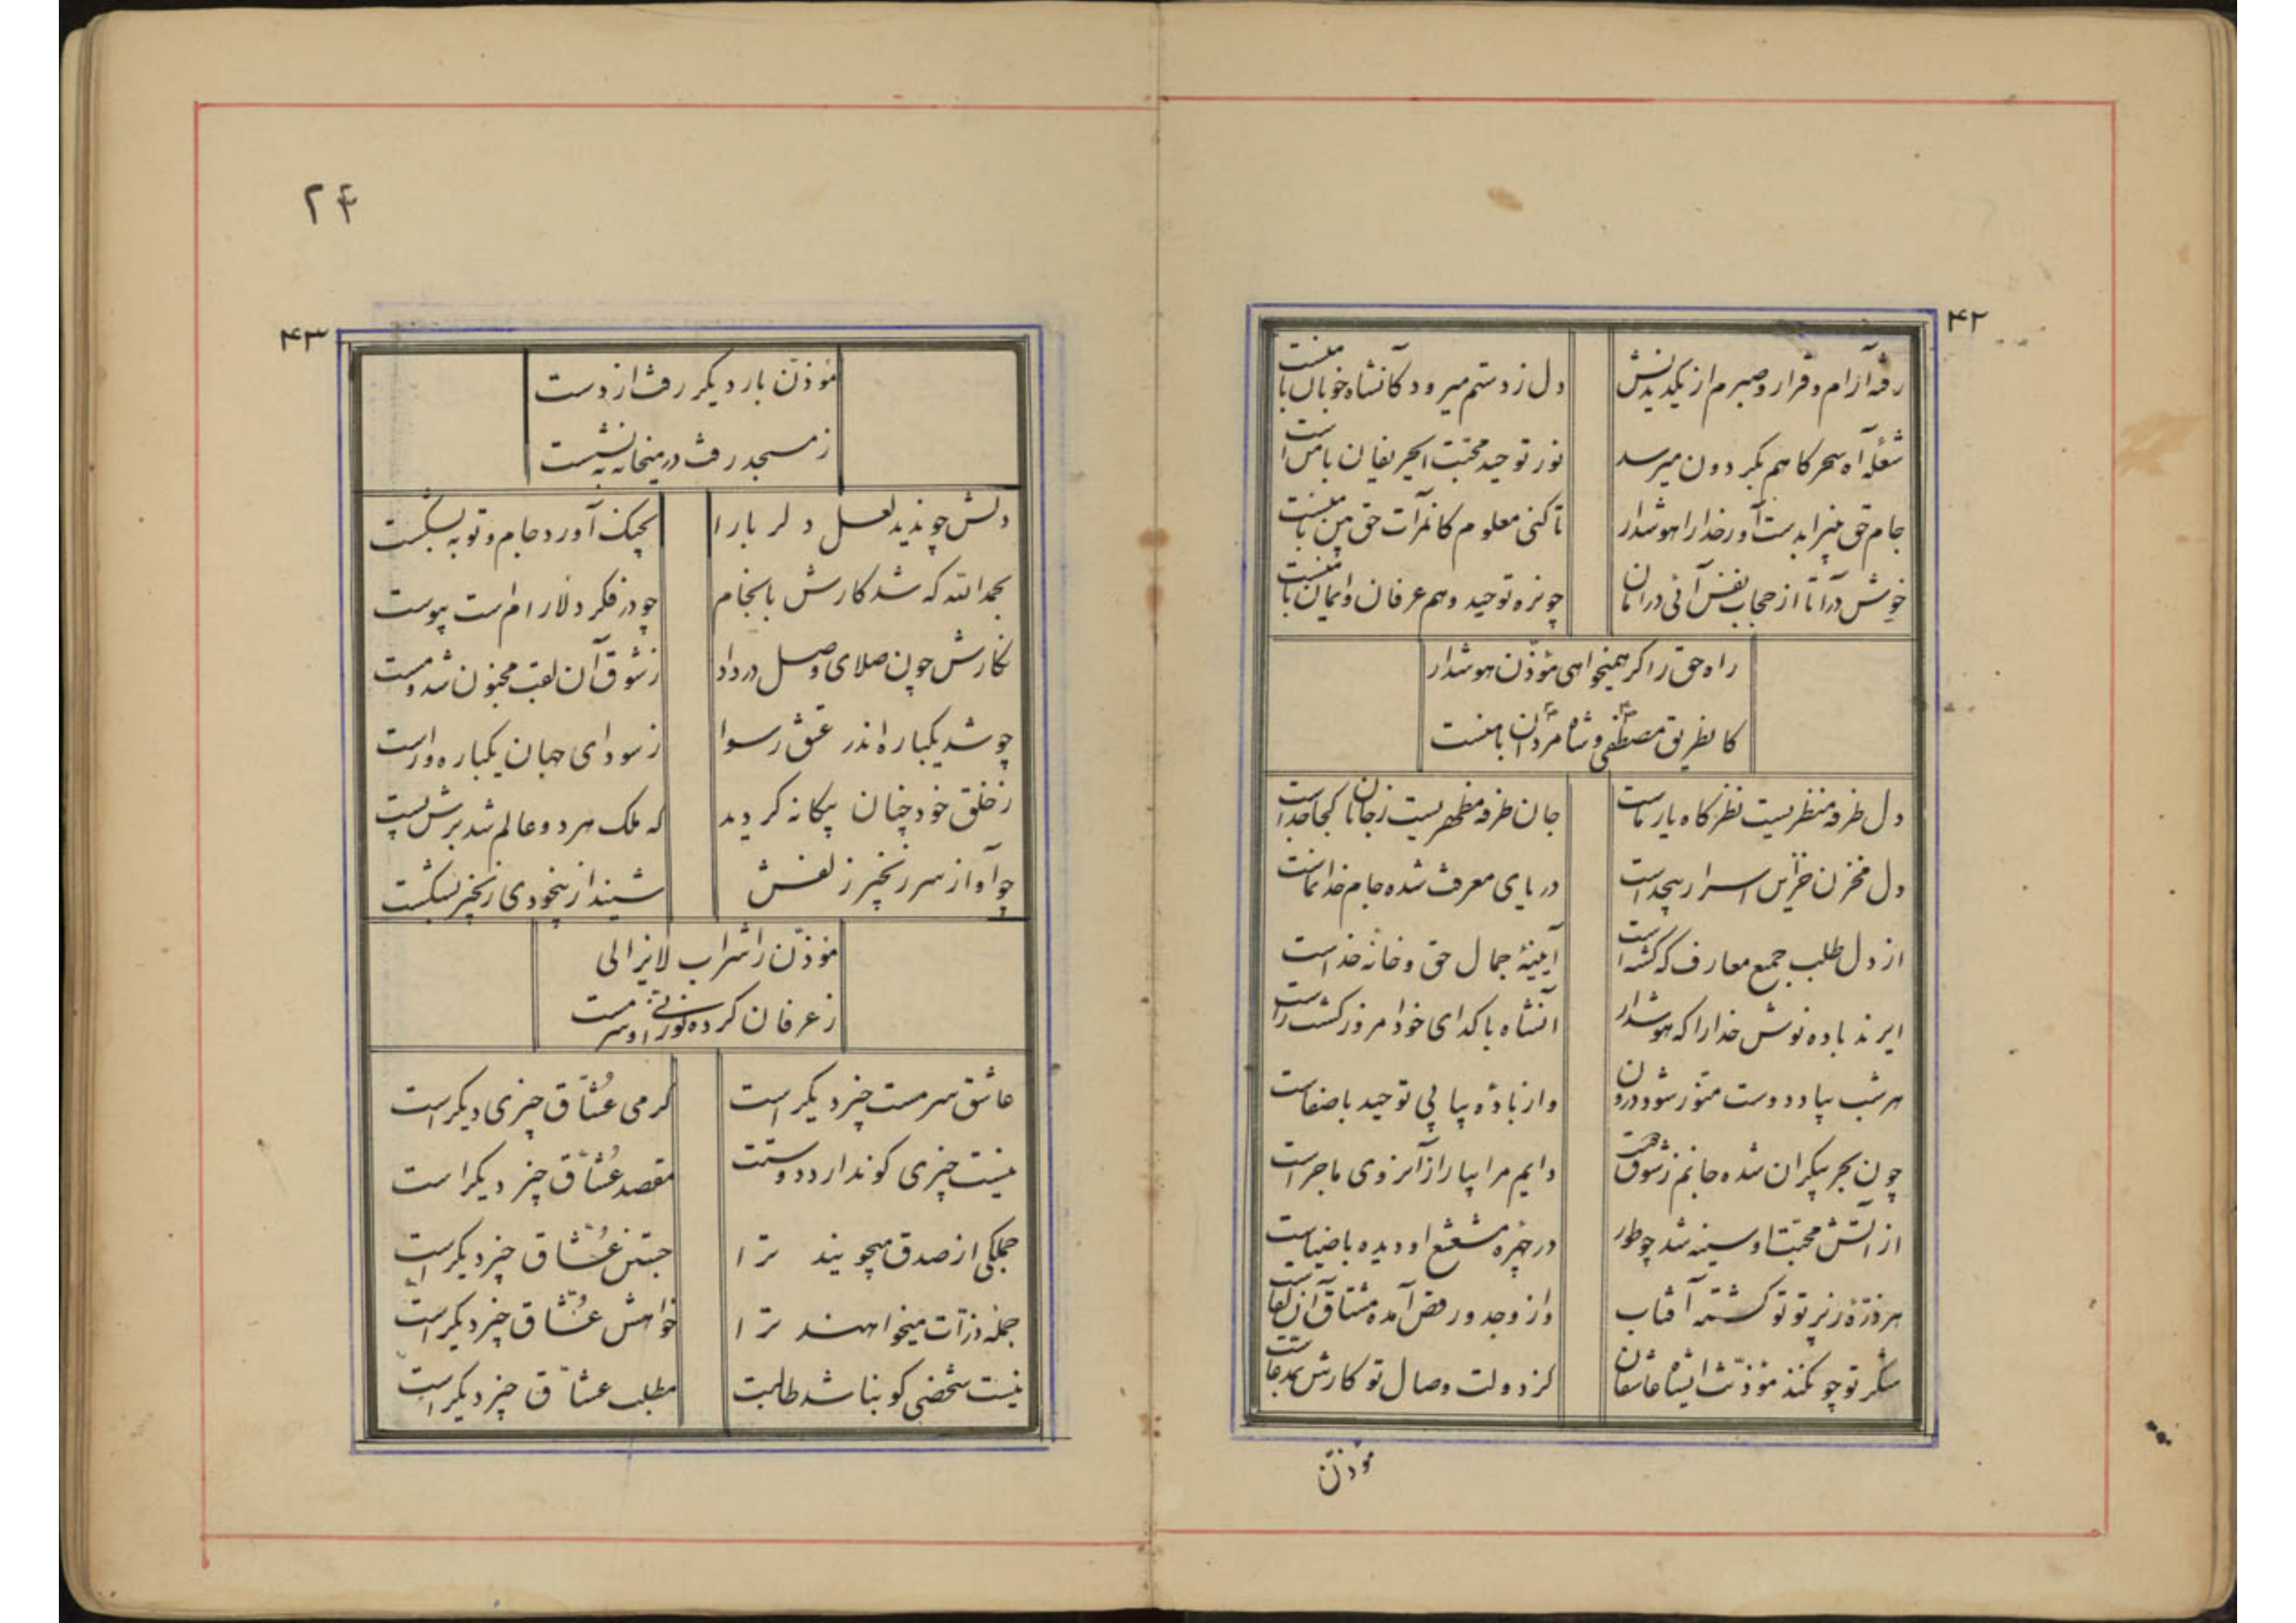 ۴۲
رفته آرام و قرار و صبرم از یکدیدنش
دل ز دستم میرود کآنشاه خوبان با منست
شعلهٔ آه سحرکاهم بکردون میرسد
نور توحید محبت ایحریفان با من است
جام حق بین را بدست آور خدا را هوشدار
تا کنی معلوم کانمرآت حق بین با منست
خوش درآ تا از حجاب نفس آئی در امان
چونره توحید و هم عرفان و ایمان با منست
راه حق را کر همیخواهی مؤذّن هوشدار
کا نطریق مصطفی و شاه مردان با منست
دل طرفه منظریست نظرکاه یار ماست
جان طرفه مظهریست ز جانان کجا جداست
دل مخزن خزاین اسرار بیحد است
دریای معرفت شده جام خدانماست
از دل طلب جمیع معارف که کشته است
آیینهٔ جمال حق و خانهٔ خداست
ایرند باده نوش خدا را که هوشدار
آنشاه با کدای خود امروز کشت راست
هر شب بیاد دوست منوّر شود درون
واز بادهٔ پیاپی توحید با صفاست
چون بحر بیکران شده جانم ز شوق دوست
دایم مرا بیار از آنروی ماجراست
از آتش محبت او سینه شد چو طور
در چهره مشعشع او دیده با ضیاست
هر ذرّهٔ ز پرتو تو کشته آفتاب
واز وجد و رقص آمده مشتاق آن لقاست
شکر تو چو نکند مؤذّنت ایشاه عاشقان
کز دولت وصال تو کارش بمدعاست
مؤذّن
۲۴
۴۳
مؤذّن بار دیکر رفت از دست
ز مسجد رفت در میخانه بنشست
دلش چو ندید لعل دلربا را
بچنک آورد جام و توبه بشکست
بحمدالله که شد کارش بانجام
چو در فکر دلارام است پیوست
نکارش چون صلای وصل در داد
ز شوق آن لقب مجنون شد و مست
چو شد یکباره اندر عشق رسوا
ز سودای جهان یکباره وارست
ز خلق خود چنان بیکانه کردید
که ملک هر دو عالم شد برش پست
چو آواز سر زنجیر زلفش
شنید از بیخودی زنجیر بشکست
مؤذّن را شراب لایزالی
ز عرفان کرده نوربخشی او سرمست
عاشق سرمست چیز دیکر است
کرمی عُشّاق چیزی دیکر است
نیست چیزی کو ندارد دوستت
مقصد عُشّاق چیز دیکر است
جملکی از صدق میجویند ترا
جستن عُشّاق چیز دیکر است
جمله ذرّات میخواهند ترا
خواهش عُشّاق چیز دیکر است
نیست شخصی کو نباشد طالبت
مطلب عشّاق چیز دیکر است